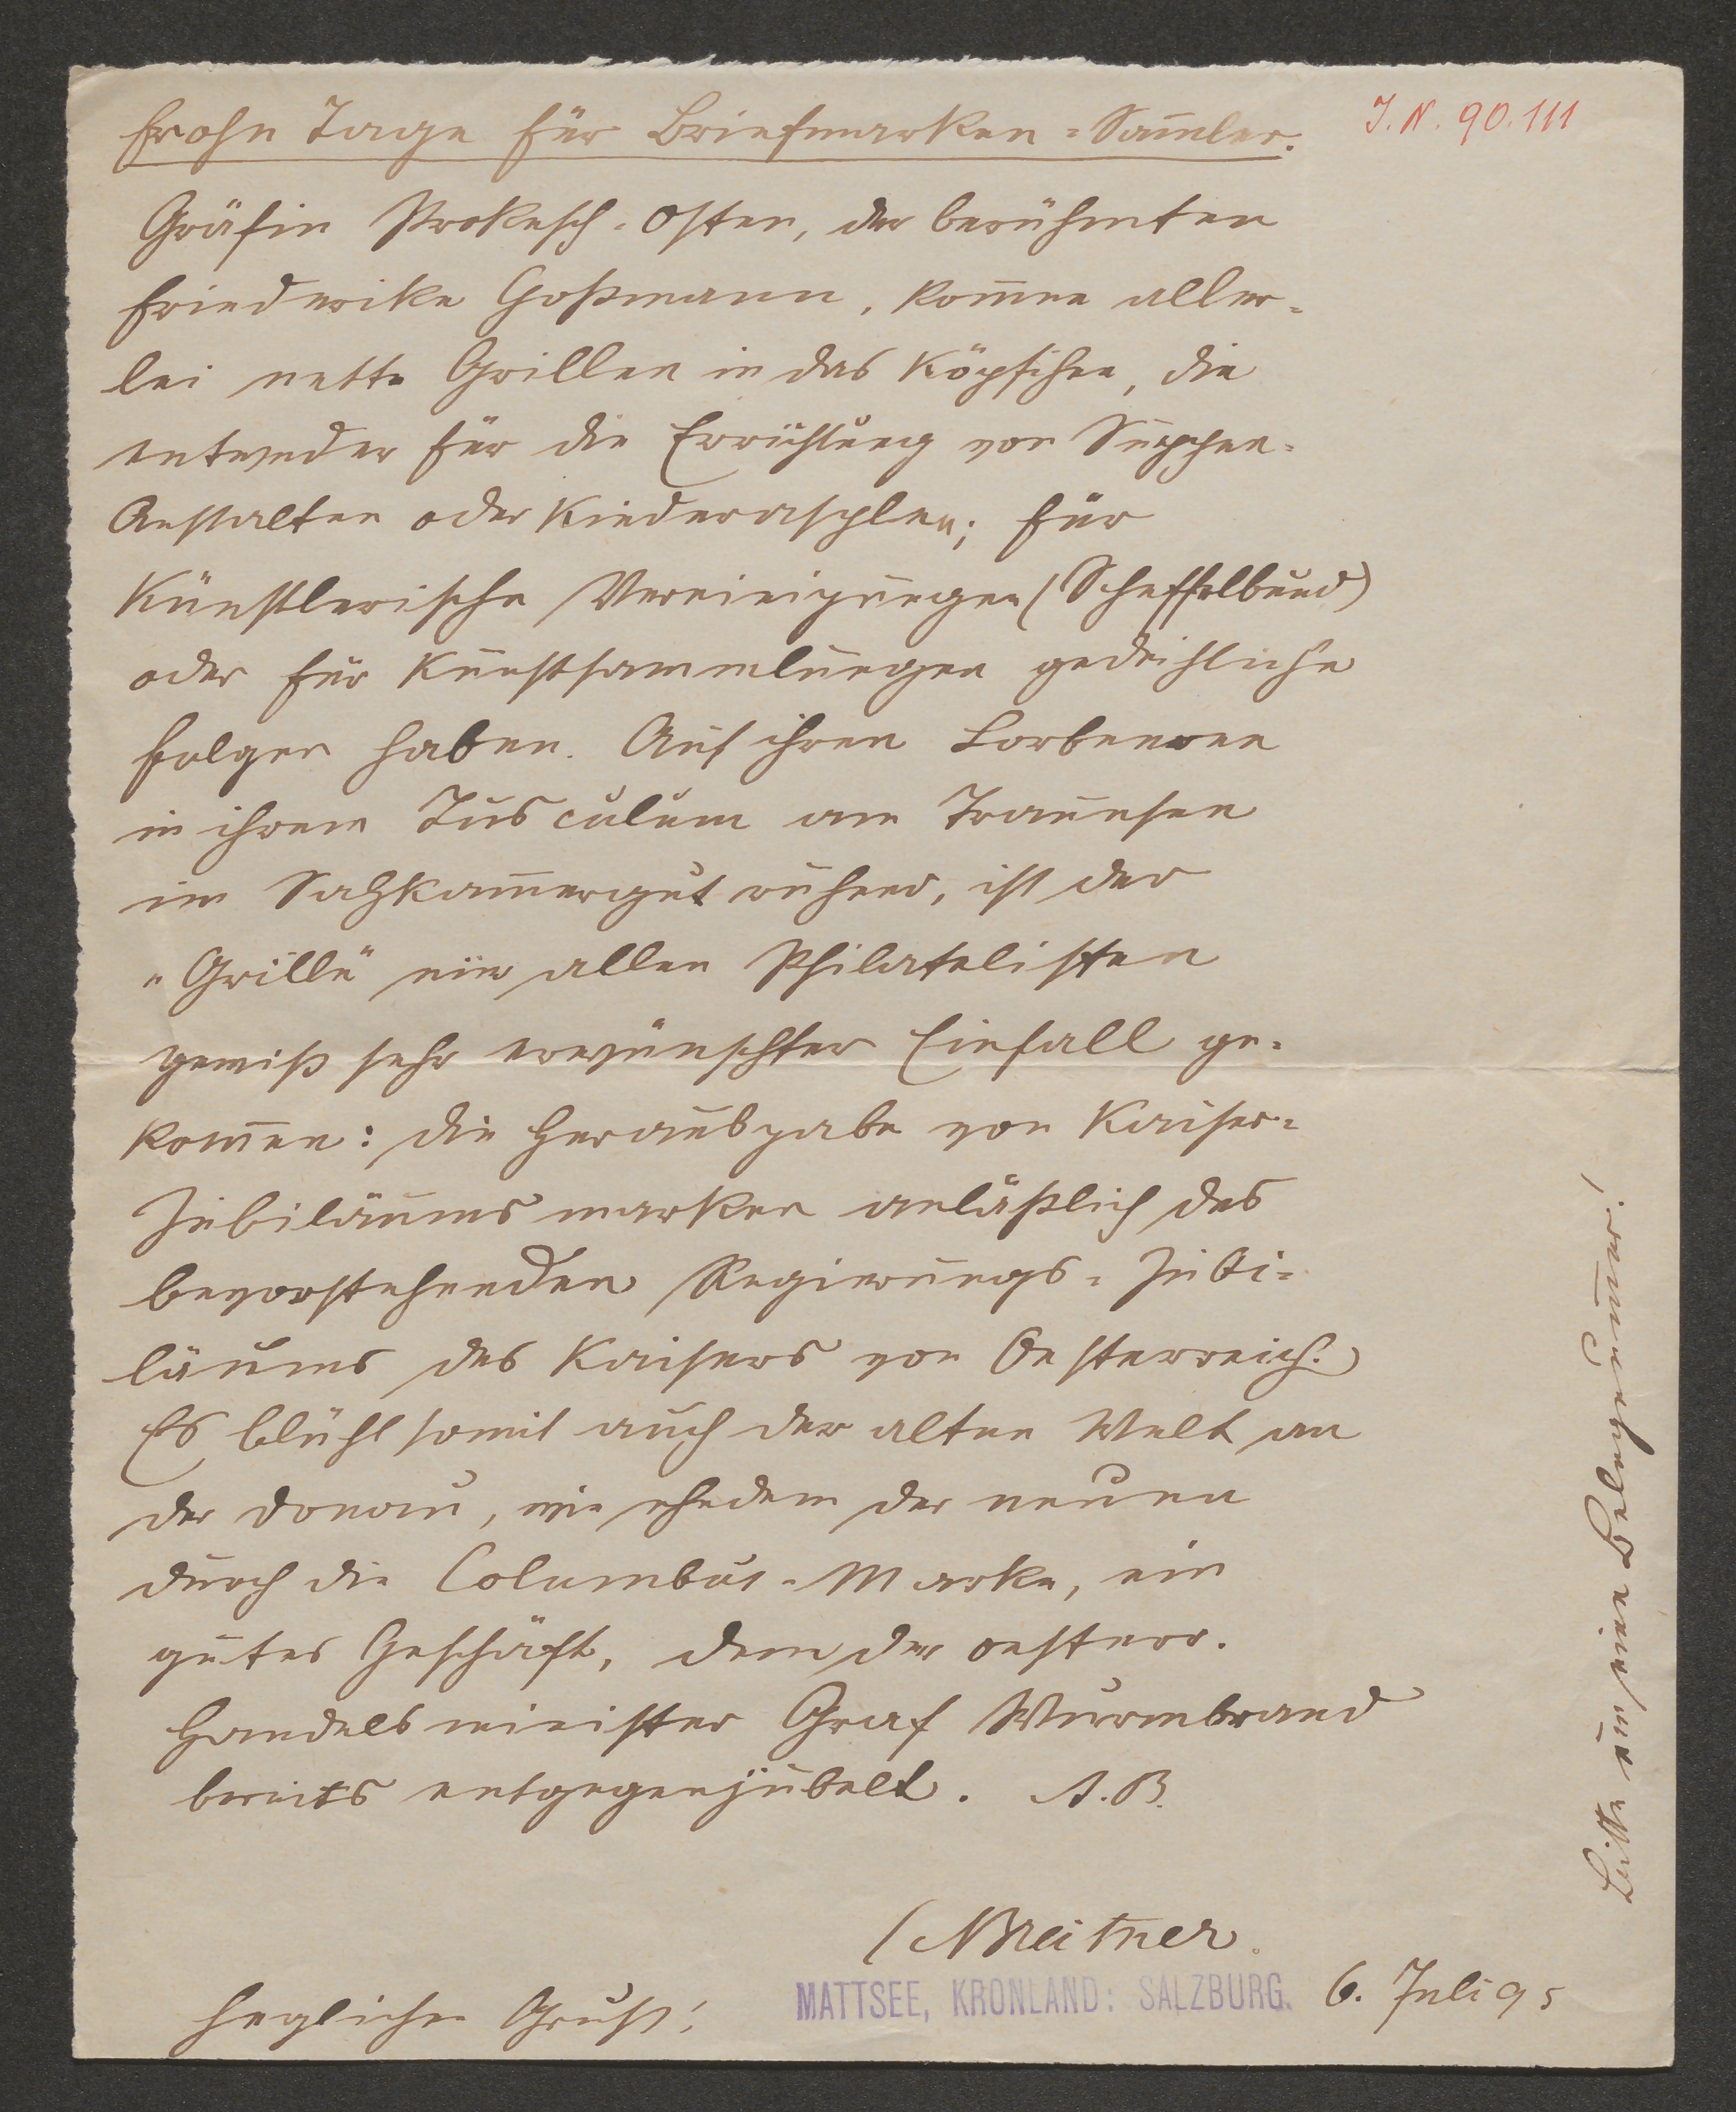 Frohe Tage für Briefmarken-Sam̄ler.
J. N. 90.111
Gräfin Prokesch-Osten, der berühmten
Friederike Goßmann, kom̄en aller-
lei nette Grillen in das Köpfchen, die
entweder für die Errichtung von Suppen-
Anstalten oder Kinderasylen; für
künstlerische Vereinigungen (Scheffelbund)
oder für Kunstsammlungen gedeihliche
Folgen haben. Auf ihren Lorbeeren
in ihrem Tusculum am Traunsee
im Salzkam̄ergut ruhend, ist der
„Grille" ein allen Philatelisten
gewiß sehr erwünschter Einfall ge-
kom̄en: die Herausgabe von Kaiser-
Jubiläumsmarken anläßlich des
bevorstehenden Regierungs-Jubi-
läums des Kaisers von Oesterreich.
Es blüht somit auch der alten Welt an
der Donau, wie ehedem der neuen
durch die Columbus-Marke, ein
gutes Geschäft, dem der oesterr.
Handelsminister Graf Wurmbrand
bereits entgegenjubelt. A. B.
(Breitner.
MATTSEE, KRONLAND: SALZBURG. 6. Juli 95
Herzlichen Gruß!
Bitte um eine Belegnum̄er!